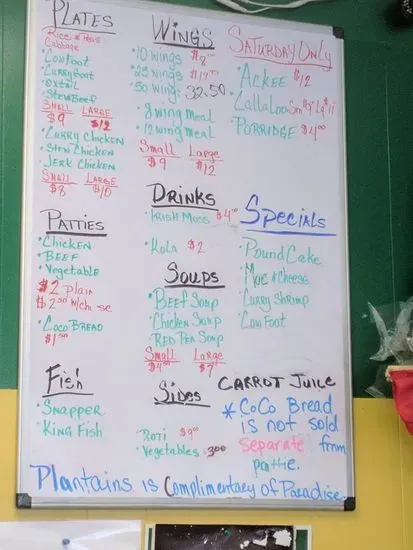 PLATES
Rice & Peas
Cabbage
• Cowfoot
• Curry Goat
• Oxtail
• Stew Beef
SMALL LARGE
$9 $12
• Curry Chicken
• Stew Chicken
• Jerk Chicken
SMALL LARGE
$8 $10
PATTIES
• Chicken
• BEEF
• Vegetable
$2 Plain
$2.50 w/ch se
• Coco BREAD
$1.50
Fish
• Snapper
• King Fish
WINGS
• 10 wings $8
• 25 wings
• 50 wings 32.50
• 8 wing meal
• 12 wing meal
Small Large
$9 $12
DRINKS
• IRISH Moss $4.00
• Kola $2
SOUPS
• Beef Soup
• Chicken Soup
• RED Pea Soup
Small Large
$4.00 $7
Sides
• Roti
• Vegetables 3.00
SATURDAY ONLY
• Ackee $12
• Callaloo
• PORRIDGE $4.00
Specials
• Pound Cake
• Mac & Cheese
• Curry Shrimp
• Cow Foot
CARROT JUICE
* CoCo Bread
is not sold
separate from
pattie.
Plantains is Complimentary of Paradise.